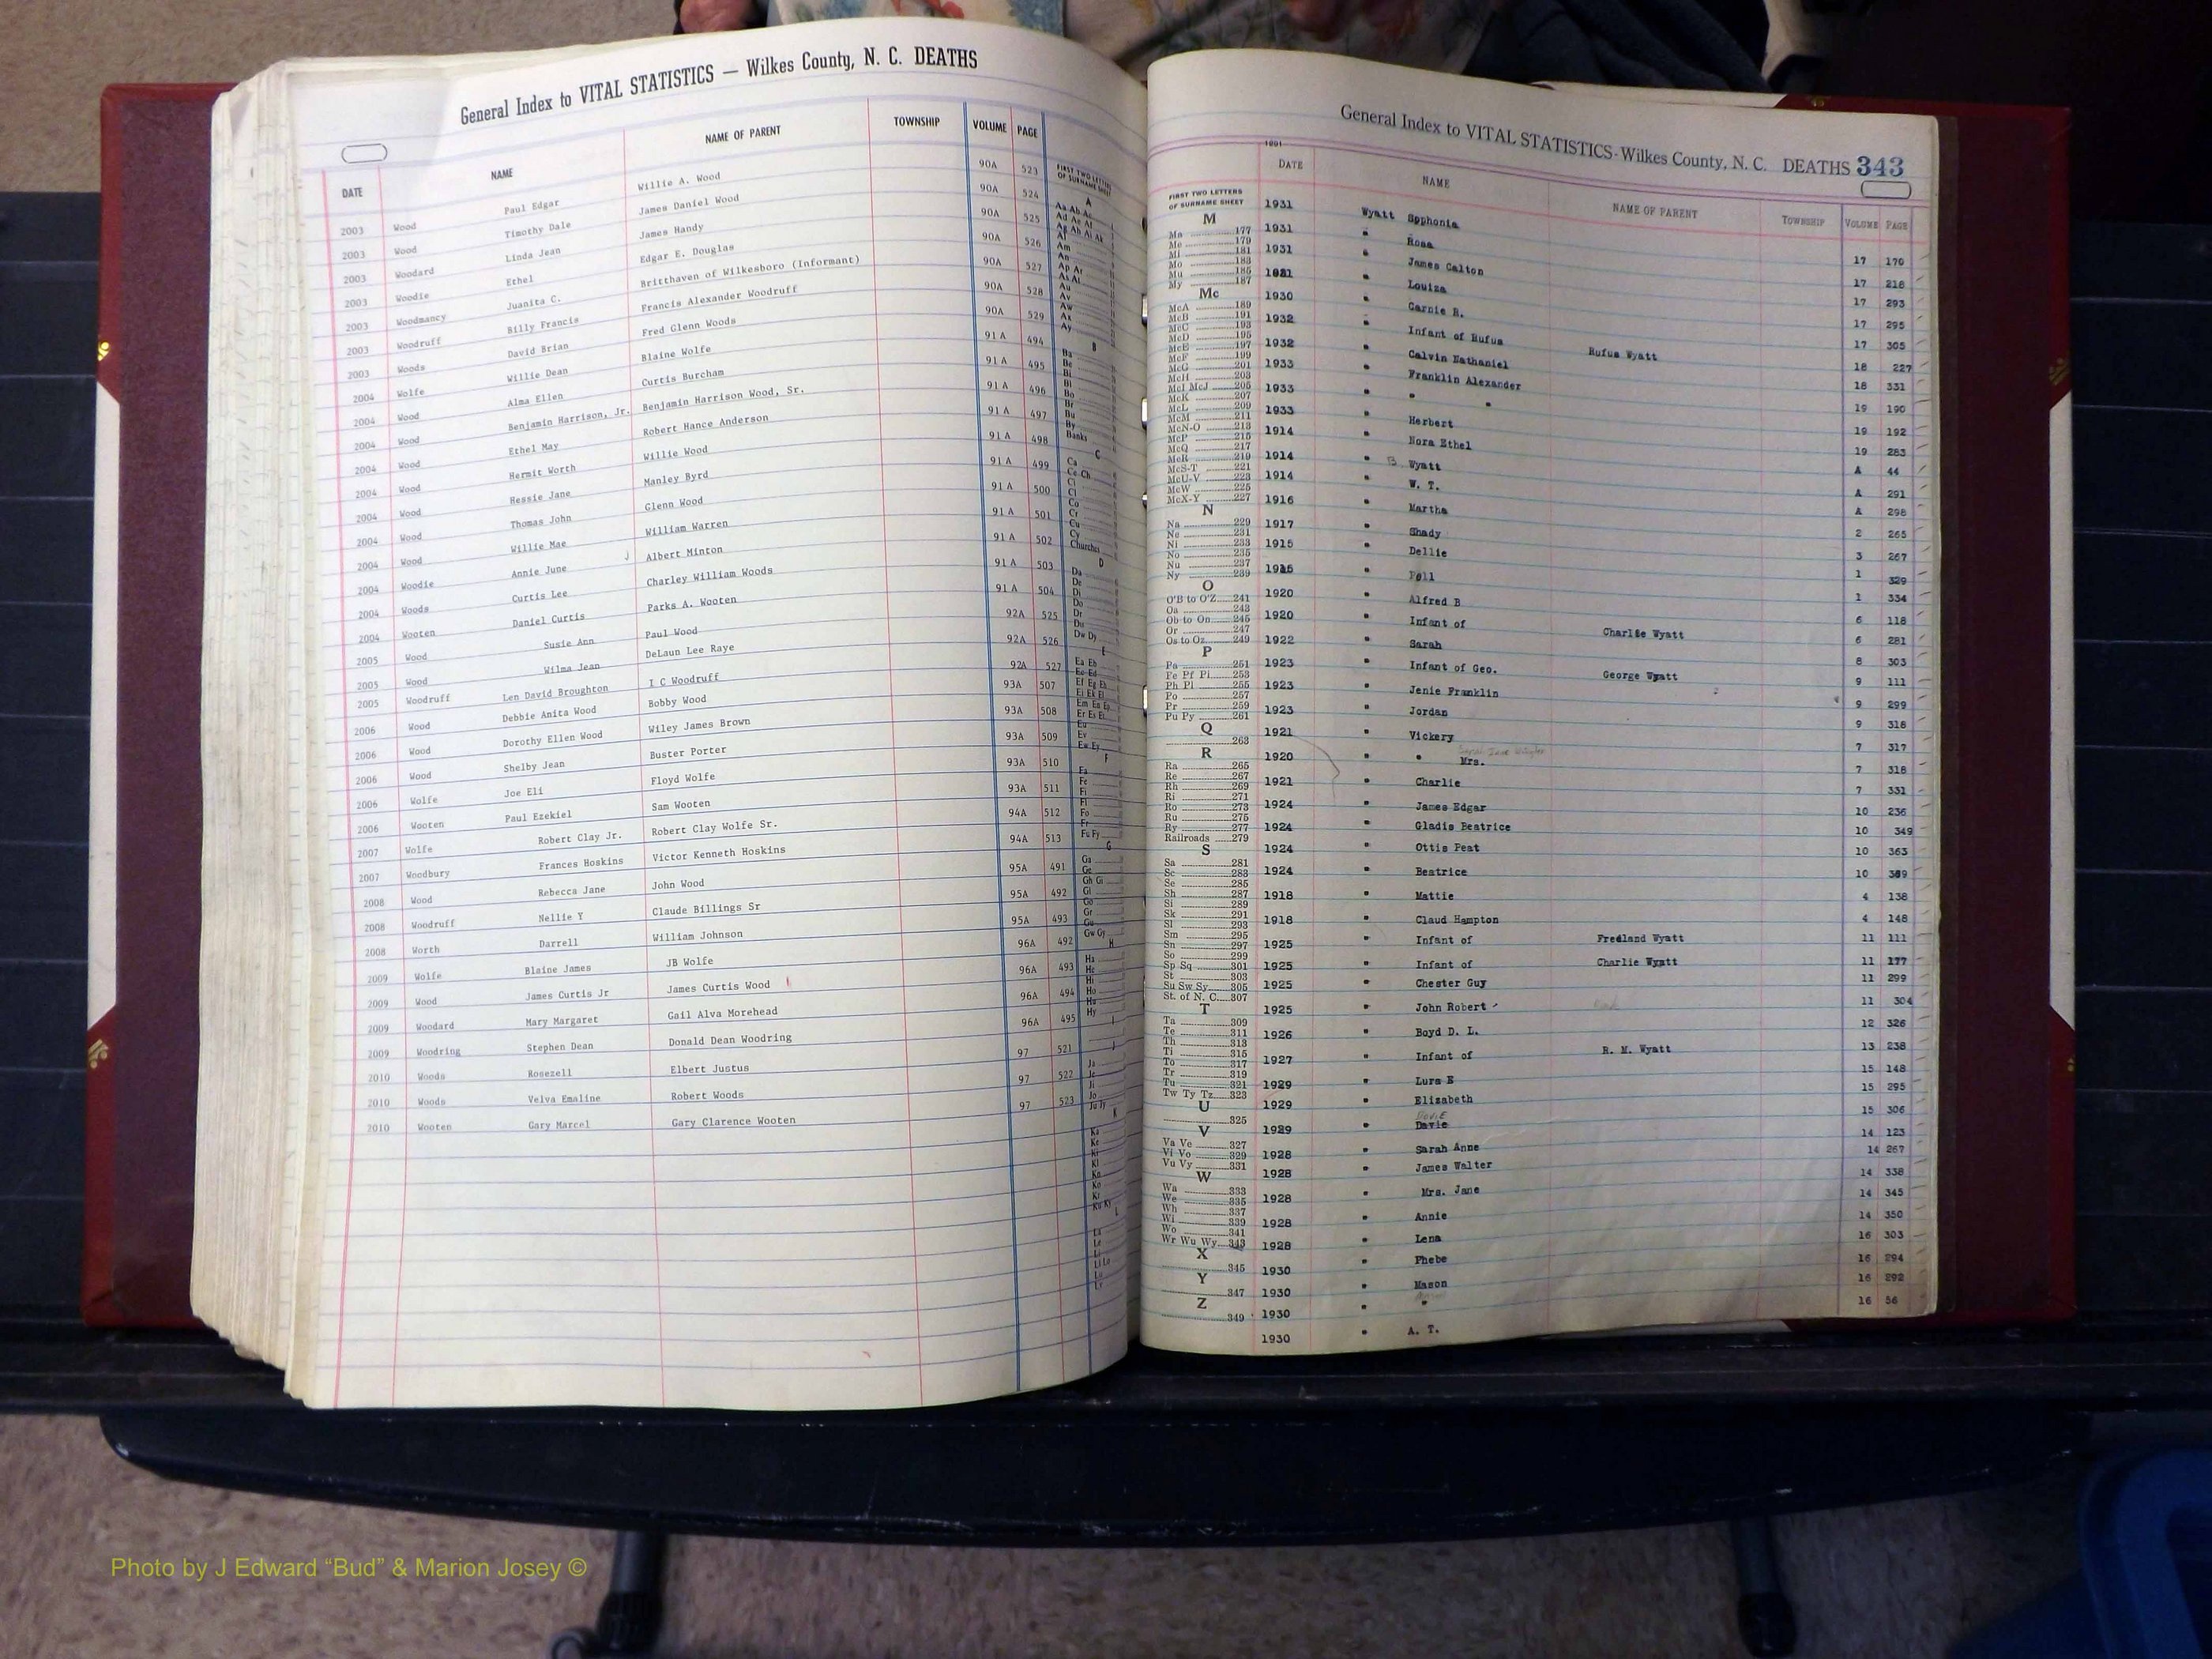 General Index to VITAL STATISTICS — Wilkes County, N. C. DEATHS
DATE NAME NAME OF PARENT TOWNSHIP VOLUME PAGE
2003 Wood Paul Edgar Willie A. Wood 90A 523
2003 Wood Timothy Dale James Daniel Wood 90A 524
2003 Woodard Linda Jean James Handy 90A 525
2003 Woodie Ethel Edgar E. Douglas 90A 526
2003 Woodmancy Juanita C. Britthaven of Wilkesboro (Informant) 90A 527
2003 Woodruff Billy Francis Francis Alexander Woodruff 90A 528
2003 Woods David Brian Fred Glenn Woods 90A 529
2004 Wolfe Willie Dean Blaine Wolfe 91 A 494
2004 Wood Alma Ellen Curtis Burcham 91 A 495
2004 Wood Benjamin Harrison, Jr. Benjamin Harrison Wood, Sr. 91 A 496
2004 Wood Ethel May Robert Hance Anderson 91 A 497
2004 Wood Hermit Worth Willie Wood 91 A 498
2004 Wood Hessie Jane Manley Byrd 91 A 499
2004 Wood Thomas John Glenn Wood 91 A 500
2004 Wood Willie Mae William Warren 91 A 501
2004 Woodie Annie June Albert Minton 91 A 502
2004 Woods Curtis Lee Charley William Woods 91 A 503
2004 Wooten Daniel Curtis Parks A. Wooten 91 A 504
2005 Wood Susie Ann Paul Wood 92A 525
2005 Wood Wilma Jean DeLaun Lee Raye 92A 526
2005 Woodruff Len David Broughton I C Woodruff 92A 527
2006 Wood Debbie Anita Wood Bobby Wood 93A 507
2006 Wood Dorothy Ellen Wood Wiley James Brown 93A 508
2006 Wood Shelby Jean Buster Porter 93A 509
2006 Wolfe Joe Eli Floyd Wolfe 93A 510
2006 Wooten Paul Ezekiel Sam Wooten 93A 511
2007 Wolfe Robert Clay Jr. Robert Clay Wolfe Sr. 94A 512
2007 Woodbury Frances Hoskins Victor Kenneth Hoskins 94A 513
2008 Wood Rebecca Jane John Wood 95A 491
2008 Woodruff Nellie Y Claude Billings Sr 95A 492
2008 Worth Darrell William Johnson 95A 493
2009 Wolfe Blaine James JB Wolfe 96A 492
2009 Wood James Curtis Jr James Curtis Wood 96A 493
2009 Woodard Mary Margaret Gail Alva Morehead 96A 494
2009 Woodring Stephen Dean Donald Dean Woodring 96A 495
2010 Woods Rosezell Elbert Justus 97 521
2010 Woods Velva Emaline Robert Woods 97 522
2010 Wooten Gary Marcel Gary Clarence Wooten 97 523
FIRST TWO LETTERS
OF SURNAME SHEET
A
Aa Ab Ac
Al
Am
An
Ap Ar
Au
Av
Aw
Ax
Ay
B
Ba
Be
Bi
Bl
Bo
Br
Bu
By
Banks
C
Ca
Ce Ch
Ci
Cl
Co
Cr
Cu
Cy
Churches
D
Da
De
Di
Do
Dr
Du
Dw Dy
E
Ea Eb
Ec Ed
Ef Eg Eh
Ei Ek El
Em En Ep
Er Es Et
Eu
Ev
Ew Ey
F
Fa
Fe
Fi
Fl
Fo
Fr
Fu Fy
G
Ga
Ge
Gh Gi
Gl
Go
Gr
Gu
Gw Gy
H
Ha
He
Hi
Ho
Hu
Hy
I
J
Ja
Je
Ji
Jo
Ju Jy
K
Ka
Ke
Ki
Kl
Kn
Ko
Kr
Ku Ky
L
La
Le
Li
Ll Lo
Lu
Ly
General Index to VITAL STATISTICS-Wilkes County, N. C. DEATHS 343
DATE NAME NAME OF PARENT TOWNSHIP VOLUME PAGE
FIRST TWO LETTERS
OF SURNAME SHEET
M
Ma 177
Me 179
Mi 181
Mo 183
Mu 185
My 187
Mc
McA 189
McB 191
McC 193
McD 195
McE 197
McF 199
McG 201
McH 203
McI McJ 205
McK 207
McL 209
McM 211
McN-O 213
McP 215
McQ 217
McR 219
McS-T 221
McU-V 223
McW 225
McX-Y 227
N
Na 229
Ne 231
Ni 233
No 235
Nu 237
Ny 239
O
O'B to O'Z 241
Oa 243
Ob to On 245
Or 247
Os to Oz 249
P
Pa 251
Pe Pf Pi 253
Ph Pl 255
Po 257
Pr 259
Pu Py 261
Q
263
R
Ra 265
Re 267
Rh 269
Ri 271
Ro 273
Ru 275
Ry 277
Railroads 279
S
Sa 281
Sc 283
Se 285
Sh 287
Si 289
Sk 291
Sl 293
Sm 295
Sn 297
So 299
Sp Sq 301
St 303
Su Sw Sy 305
St. of N. C. 307
T
Ta 309
Te 311
Th 313
Ti 315
To 317
Tr 319
Tu 321
Tw Ty Tz 323
U
325
V
Va Ve 327
Vi Vo 329
Vu Vy 331
W
Wa 333
We 335
Wh 337
Wi 339
Wo 341
Wr Wu Wy 343
X
345
Y
347
Z
349
1931 Wyatt Spphonia 17 170
1931 " Rosa 17 218
1931 " James Calton 17 293
1931 " Louiza 17 295
1930 " Carnie R. 17 305
1932 " Infant of Rufus Rufus Wyatt 18 227
1932 " Calvin Nathaniel 18 331
1933 " Franklin Alexander 19 190
1933 " " " 19 192
1933 " Herbert 19 283
1914 " Nora Ethel A 44
1914 " B Wyatt A 291
1914 " W. T. A 298
1916 " Martha 2 265
1917 " Shady 3 267
1915 " Dellie 1 329
1915 " Poll 1 334
1920 " Alfred B 6 118
1920 " Infant of Charlie Wyatt 6 281
1922 " Sarah 8 303
1923 " Infant of Geo. George Wyatt 9 111
1923 " Jenie Franklin 9 299
1923 " Jordan 9 316
1921 " Vickery 7 317
1920 " " Mrs. 7 318
1921 " Charlie 7 331
1924 " James Edgar 10 236
1924 " Gladis Beatrice 10 349
1924 " Ottis Peat 10 363
1924 " Beatrice 10 389
1918 " Mattie 4 138
1918 " Claud Hampton 4 148
1925 " Infant of Fredland Wyatt 11 111
1925 " Infant of Charlie Wyatt 11 177
1925 " Chester Guy 11 299
1925 " John Robert 11 304
1926 " Boyd D. L. 12 326
1927 " Infant of R. M. Wyatt 13 238
1929 " Lura E 15 148
1929 " Elizabeth 15 295
DOVIE
1929 " Davie 15 306
1928 " Sarah Anne 14 123
1928 " James Walter 14 257
1928 " Mrs. Jane 14 338
1928 " Annie 14 345
1928 " Lena 14 350
1930 " Phebe 16 303
1930 " Mason 16 294
1930 " " 16 292
1930 " A. T. 16 56
Photo by J Edward “Bud” & Marion Josey ©